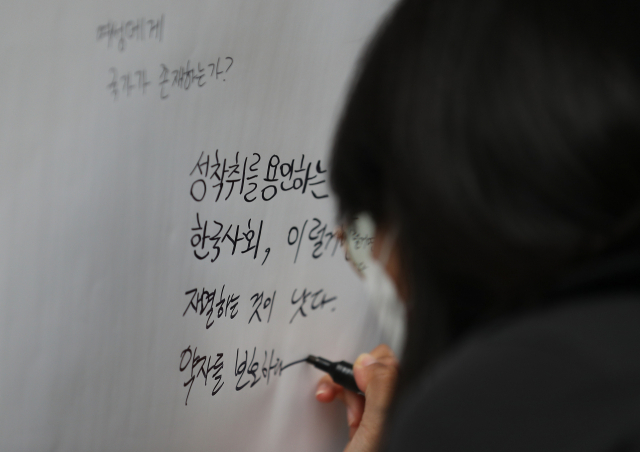 여성에게
국가가 존재하는가?
성착취를 용인하는
한국사회, 이럴거
재멸하는 것이 낫다.
약자를 보호하